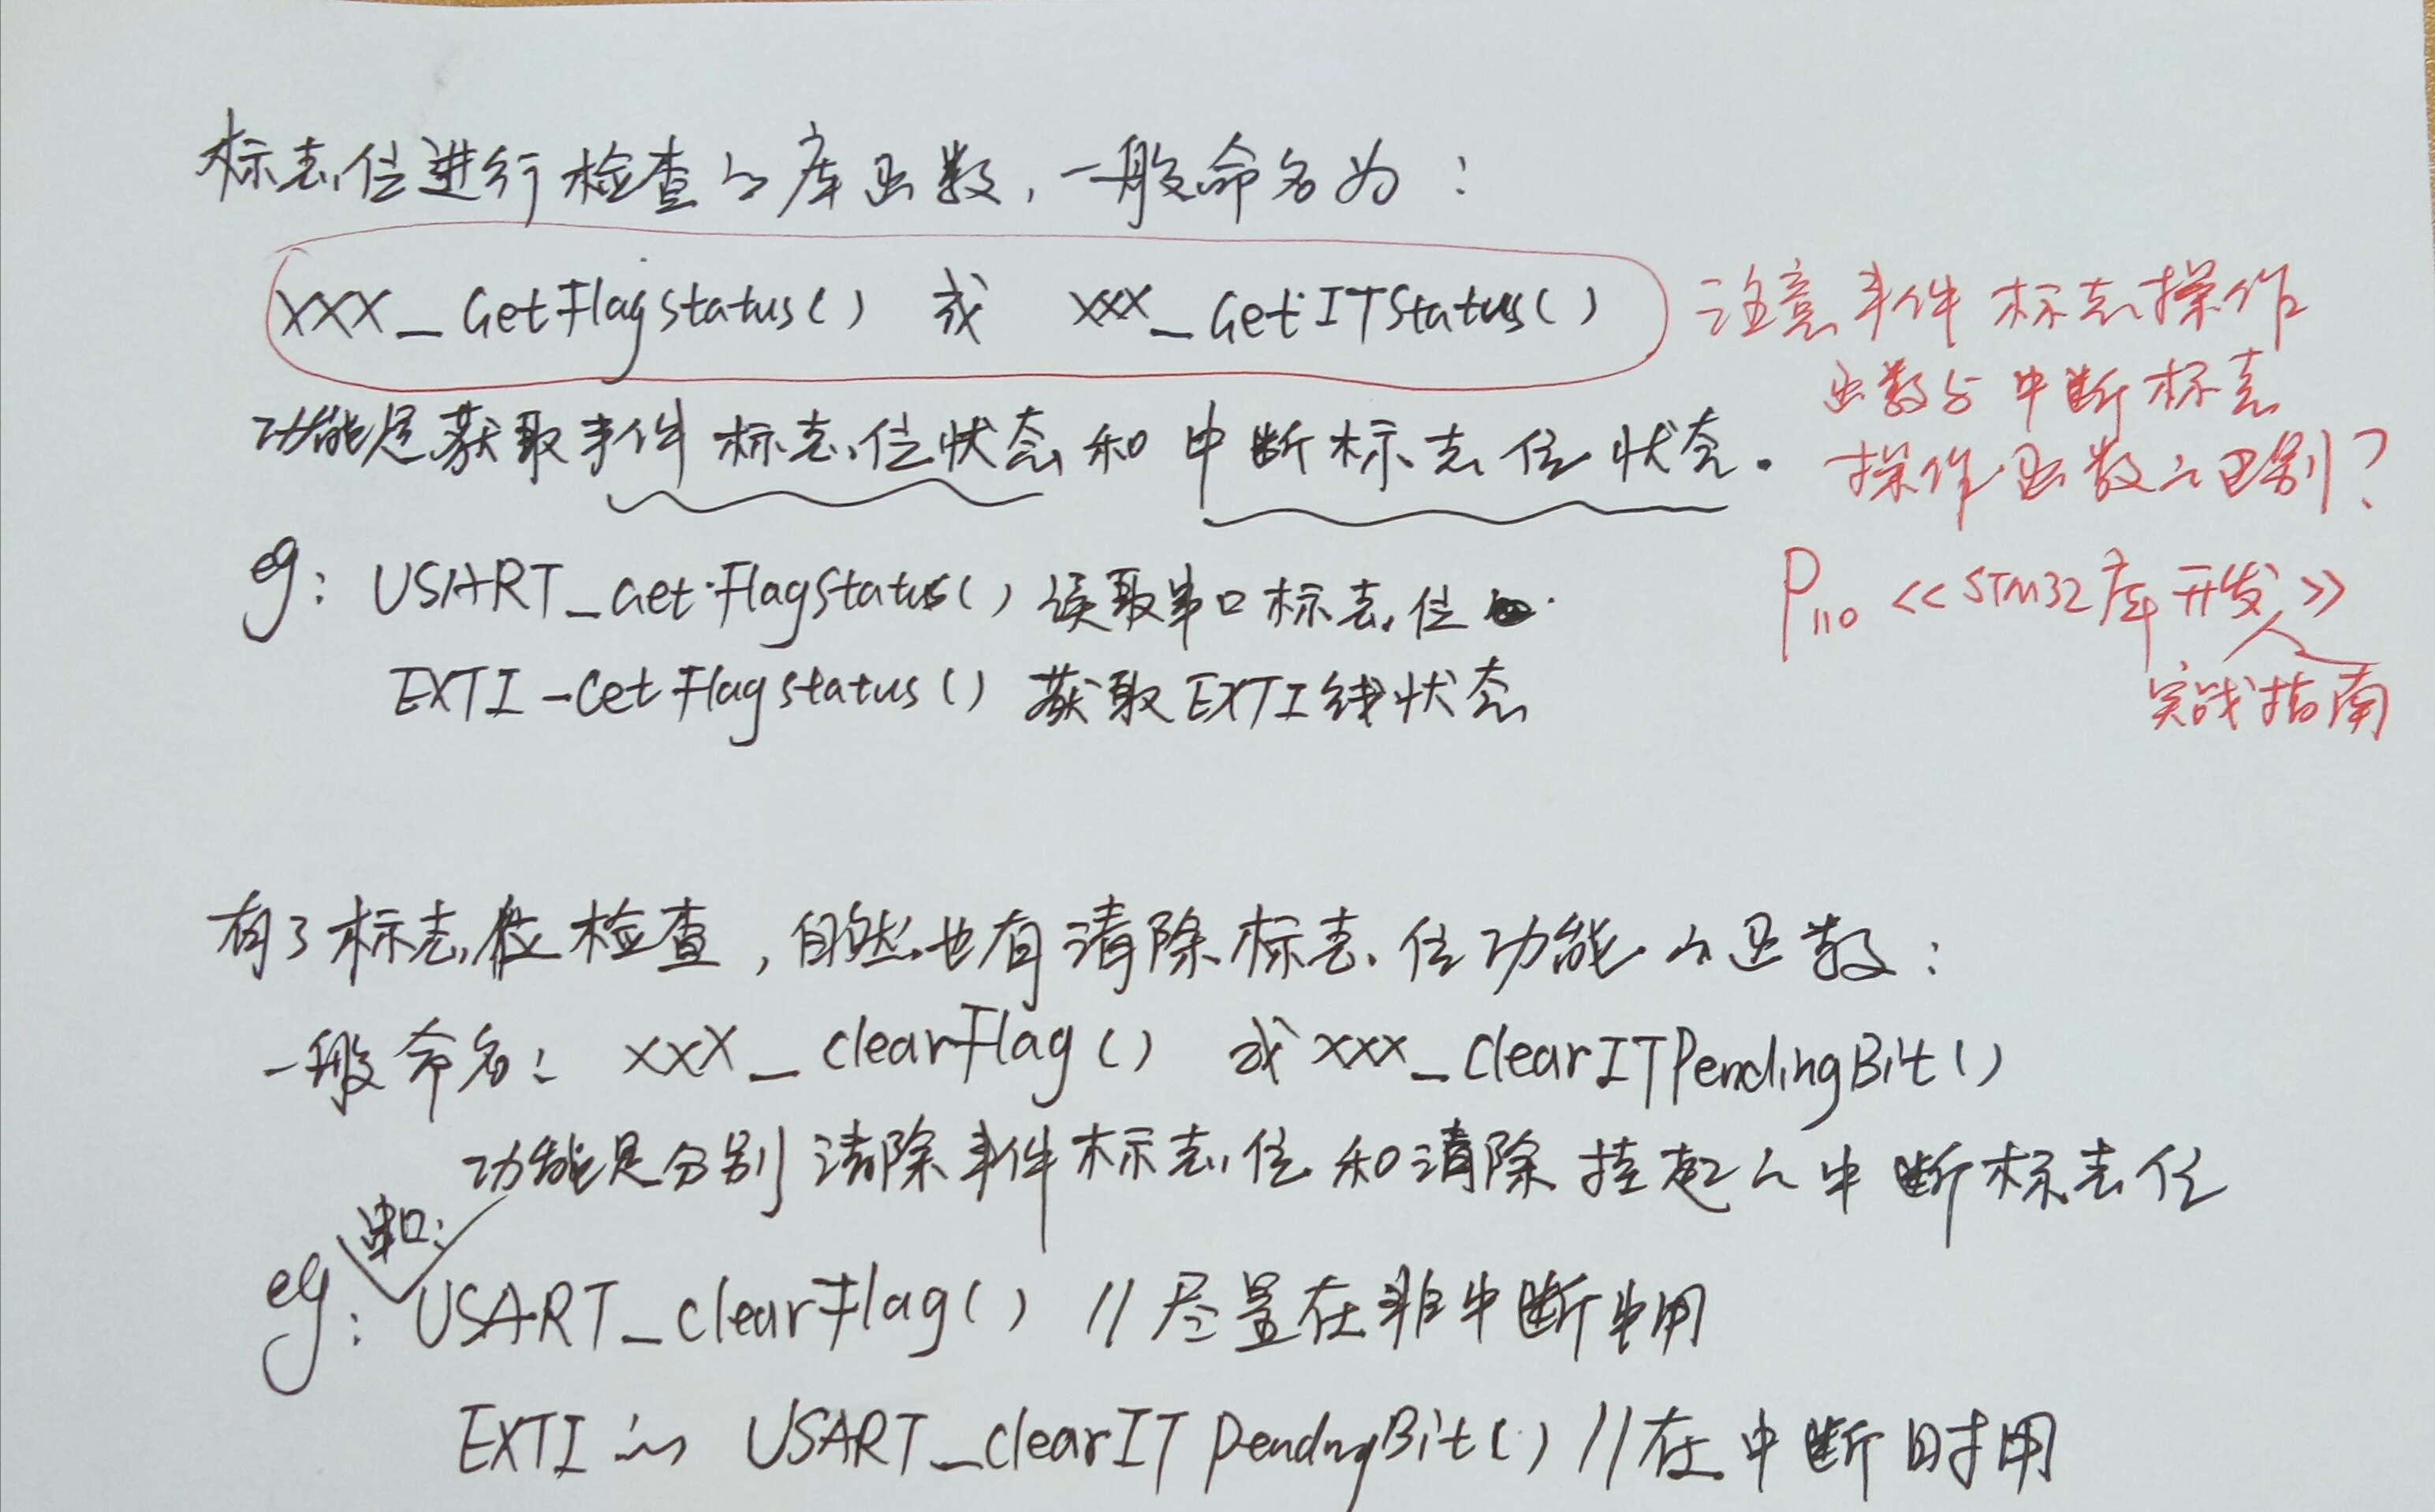 标志位进行检查的库函数，一般命名为：
XXX_GetFlagstatus() 或 XXX_GetITStatus()
功能是获取事件标志位状态和中断标志位状态.
eg: USART_GetFlagStatus() 读取串口标志位
EXTI-GetFlagstatus() 获取EXTI线状态
注意事件标志操作
函数与中断标志
操作函数的区别?
P110 <<STM32库开发>>
实战指南
有了标志位检查，自然也有清除标志位功能的函数：
一般命名: XXX_clearFlag() 或 XXX_clearITPendingBit()
功能是分别清除事件标志位和清除挂起的中断标志位
串口:
eg: USART_clearFlag() //尽量在非中断中用
EXTI USART_clearITPendngBit() //在中断时用